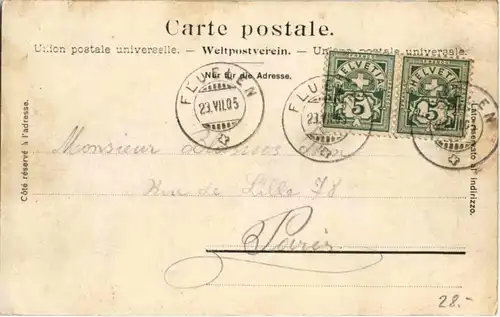 Carte postale.
Union postale universelle. — Weltpostverein. — Union postale universale.
Nur für die Adresse.
Côté réservé à l'adresse.
FLUELEN
23.VII.05
FLUELEN
23.VII
FLUELEN
HELVETIA
5
HELVETIA
5
Lato riservato all' indirizzo.
Monsieur
Rue de Lille 78
Paris
28.-